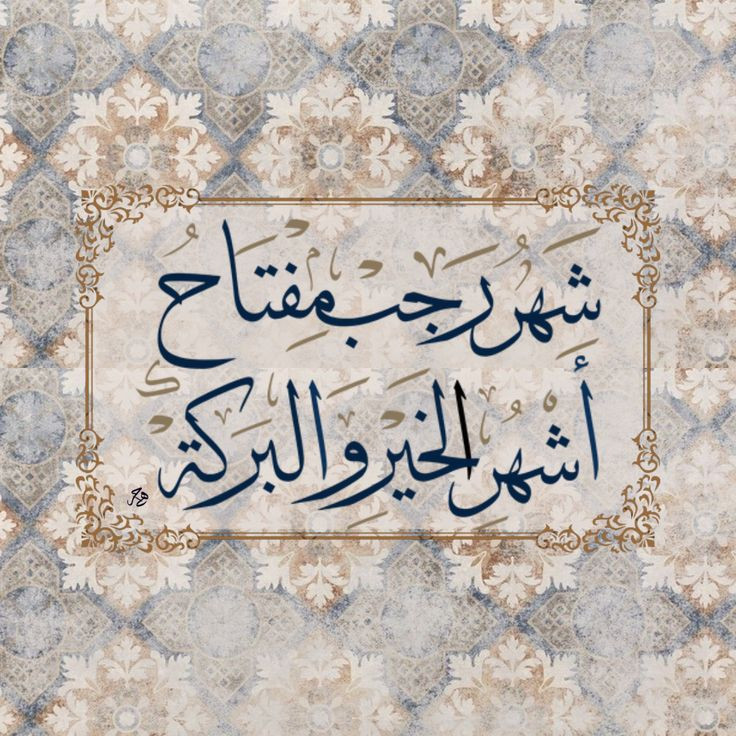 شَهْرُ رَجَب مِفْتَاحُ
أَشْهُرِ الخَيْرِ وَالبَرَكَةْ